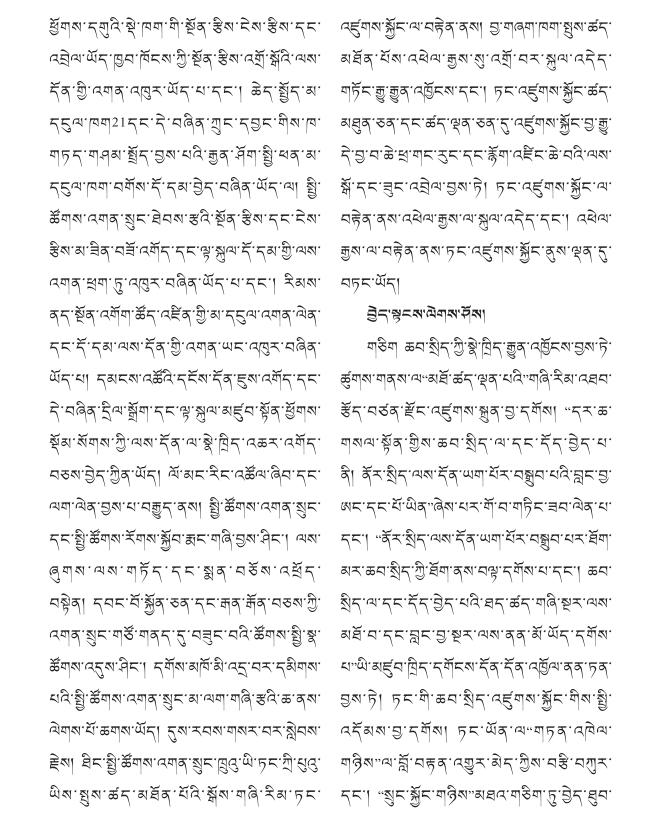 ཕྱོགས་དགུའི་སྡེ་ཁག་གི་སྔོན་རྩིས་ངེས་རྩིས་དང་
འབྲེལ་ཡོད་ཁྱབ་ཁོངས་ཀྱི་སྔོན་རྩིས་འགྲོ་སྒོའི་ལས་
དོན་གྱི་འགན་འཁུར་ཡོད་པ་དང་། ཆེད་སྤྲོད་མ་
དངུལ་ཁག21དང་དེ་བཞིན་ཀྲུང་དབྱང་གིས་ཁ་
གཏད་གཤམ་སྤྲོད་བྱས་པའི་རྒྱན་ཤོག་སྤྱི་ཕན་མ་
དངུལ་ཁག་བགོས་དོ་དམ་བྱེད་བཞིན་ཡོད་ལ། སྤྱི་
ཚོགས་འགན་སྲུང་ཐེབས་རྩའི་སྔོན་རྩིས་དང་ངེས་
རྩིས་མ་ཟིན་བཟོ་འགོད་དང་ལྟ་སྐུལ་དོ་དམ་གྱི་ལས་
འགན་ཕྲག་ཏུ་འཁུར་བཞིན་ཡོད་པ་དང་། རིམས་
ནད་སྔོན་འགོག་ཚོད་འཛིན་གྱི་མ་དངུལ་འགན་ལེན་
དང་དོ་དམ་ལས་དོན་གྱི་འགན་ཡང་འཁུར་བཞིན་
ཡོད་པ། དམངས་འཚོའི་དངོས་དོན་ཇུས་འགོད་དང་
དེ་བཞིན་དྲིལ་སྒྲོག་དང་ལྟ་སྐུལ་མཛུབ་སྟོན་ཕྱོགས་
སྡོམ་སོགས་ཀྱི་ལས་དོན་ལ་སྣེ་ཁྲིད་འཆར་འགོད་
བཅས་བྱེད་ཀྱིན་ཡོད། ལོ་མང་རིང་འཚོལ་ཞིབ་དང་
ལག་ལེན་བྱས་པ་བརྒྱུད་ནས། སྤྱི་ཚོགས་འགན་སྲུང་
དང་སྤྱི་ཚོགས་རོགས་སྐྱོབ་རྨང་གཞི་བྱས་ཤིང་། ལས་
ཞུགས་ལས་གཏོད་དང་སྨན་བཅོས་འཕྲོད་
བསྟེན། དབང་པོ་སྐྱོན་ཅན་དང་རྒན་རྒོན་བཅས་ཀྱི་
འགན་སྲུང་གཙོ་གནད་དུ་བཟུང་བའི་ཚོགས་སྤྱི་སྣ་
ཚོགས་འདུས་ཤིང་། དགོས་མཁོ་མི་འདྲ་བར་དམིགས་
པའི་སྤྱི་ཚོགས་འགན་སྲུང་མ་ལག་གཞི་རྩའི་ཆ་ནས་
ལེགས་པོ་ཆགས་ཡོད། དུས་རབས་གསར་བར་སླེབས་
རྗེས། ཐིང་སྤྱི་ཚོགས་འགན་སྲུང་ཁྲུའུ་ཡི་ཏང་ཀྲི་པུའུ་
ཡིས་སྤུས་ཚད་མཐོན་པོའི་སྒོས་གཞི་རིམ་ཏང་
འཛུགས་སྐྱོང་ལ་བརྟེན་ནས། བྱ་གཞག་ཁག་སྤུས་ཚད་
མཐོན་པོས་འཕེལ་རྒྱས་སུ་འགྲོ་བར་སྐུལ་འདེད་
གཏོང་རྒྱུ་རྒྱུན་འཁྱོངས་དང་། ཏང་འཛུགས་སྐྱོང་ཚད་
མཐུན་ཅན་དང་ཚད་ལྡན་ཅན་དུ་འཛུགས་སྐྱོང་བྱ་རྒྱུ་
དེ་བྱ་བ་ཆེ་ཕྲ་གང་རུང་དང་རྙོག་འཛིང་ཆེ་བའི་ལས་
སྒོ་དང་ཟུང་འབྲེལ་བྱས་ཏེ། ཏང་འཛུགས་སྐྱོང་ལ་
བརྟེན་ནས་འཕེལ་རྒྱས་ལ་སྐུལ་འདེད་དང་། འཕེལ་
རྒྱས་ལ་བརྟེན་ནས་ཏང་འཛུགས་སྐྱོང་ནུས་ལྡན་དུ་
བཏང་ཡོད།
བྱེད་སྟངས་ལེགས་ཤོས།
གཅིག ཆབ་སྲིད་ཀྱི་སྣེ་ཁྲིད་རྒྱུན་འཁྱོངས་བྱས་ཏེ་
ཚུགས་གནས་ལ་“མཐོ་ཚད་ལྡན་པའི”གཞི་རིམ་འཐབ་
རྩོད་བཙན་རྫོང་འཛུགས་སྐྲུན་བྱ་དགོས། “དར་ཆ་
གསལ་སྟོན་གྱིས་ཆབ་སྲིད་ལ་དང་དོད་བྱེད་པ་
ནི། ནོར་སྲིད་ལས་དོན་ཡག་པོར་བསྒྲུབ་པའི་བླང་བྱ་
ཨང་དང་པོ་ཡིན”ཞེས་པར་གོ་བ་གཏིང་ཟབ་ལེན་པ་
དང་། “ནོར་སྲིད་ལས་དོན་ཡག་པོར་བསྒྲུབ་པར་ཐོག་
མར་ཆབ་སྲིད་ཀྱི་ཐོག་ནས་བལྟ་དགོས་པ་དང་། ཆབ་
སྲིད་ལ་དང་དོད་བྱེད་པའི་ཐད་ཚད་གཞི་སྔར་ལས་
མཐོ་བ་དང་བླང་བྱ་སྔར་ལས་ནན་མོ་ཡོད་དགོས་
པ”ཡི་མཛུབ་ཁྲིད་དགོངས་དོན་དོན་འཁྱོལ་ནན་ཏན་
བྱས་ཏེ། ཏང་གི་ཆབ་སྲིད་འཛུགས་སྐྱོང་གིས་སྤྱི་
འདོམས་བྱ་དགོས། ཏང་ཡོན་ལ“གཏན་འཁེལ་
གཉིས”ལ་བློ་བརྟན་འགྱུར་མེད་ཀྱིས་བརྩི་བཀུར་
དང་། “སྲུང་སྐྱོང་གཉིས”མཐའ་གཅིག་ཏུ་བྱེད་ཐུབ་